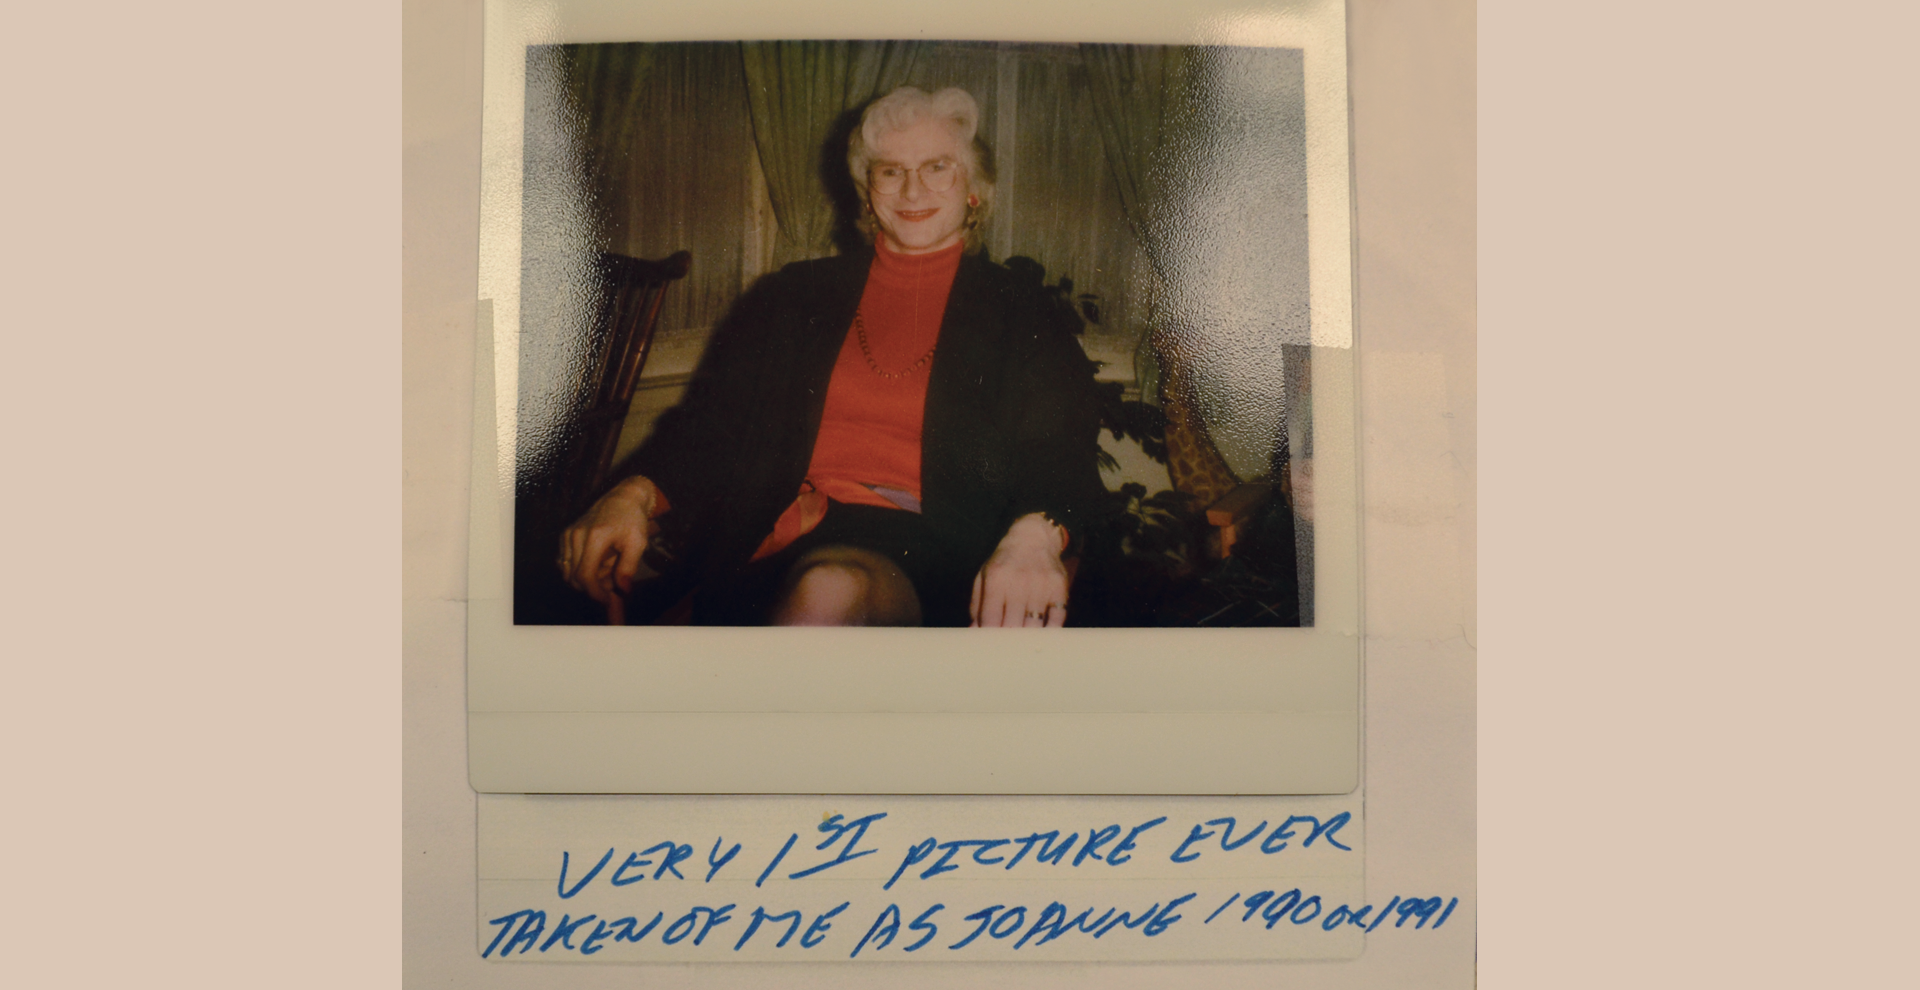 VERY 1ST PICTURE EVER
TAKEN OF ME AS JOANNE 1990 OR 1991